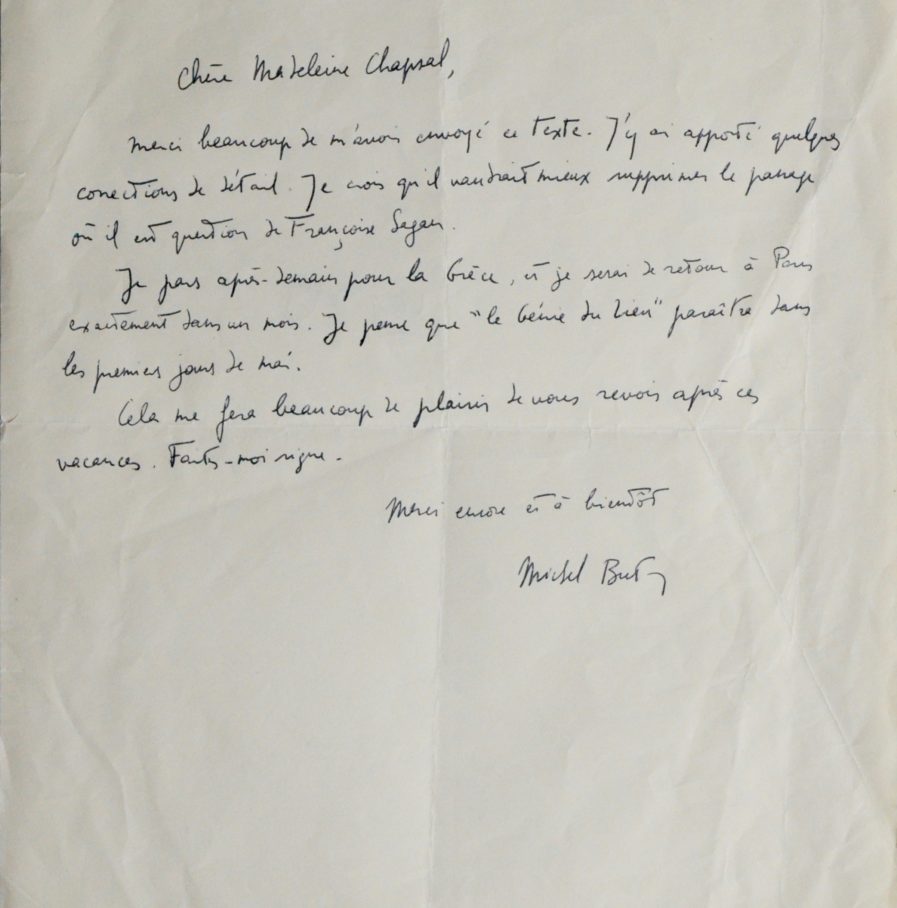 Chère Madeleine Chapsal,
Merci beaucoup de m'avoir envoyé ce texte. J'y ai apporté quelques
corrections de détail. Je crois qu'il vaudrait mieux supprimer le passage
où il est question de Françoise Sagan.
Je pars après-demain pour la Grèce, et je serai de retour à Paris
exactement dans un mois. Je pense que "le Génie du Lieu" paraîtra dans
les premiers jours de mai.
Cela me fera beaucoup de plaisir de vous revoir après ces
vacances. Faites-moi signe.
Merci encore et à bientôt
Michel Butor